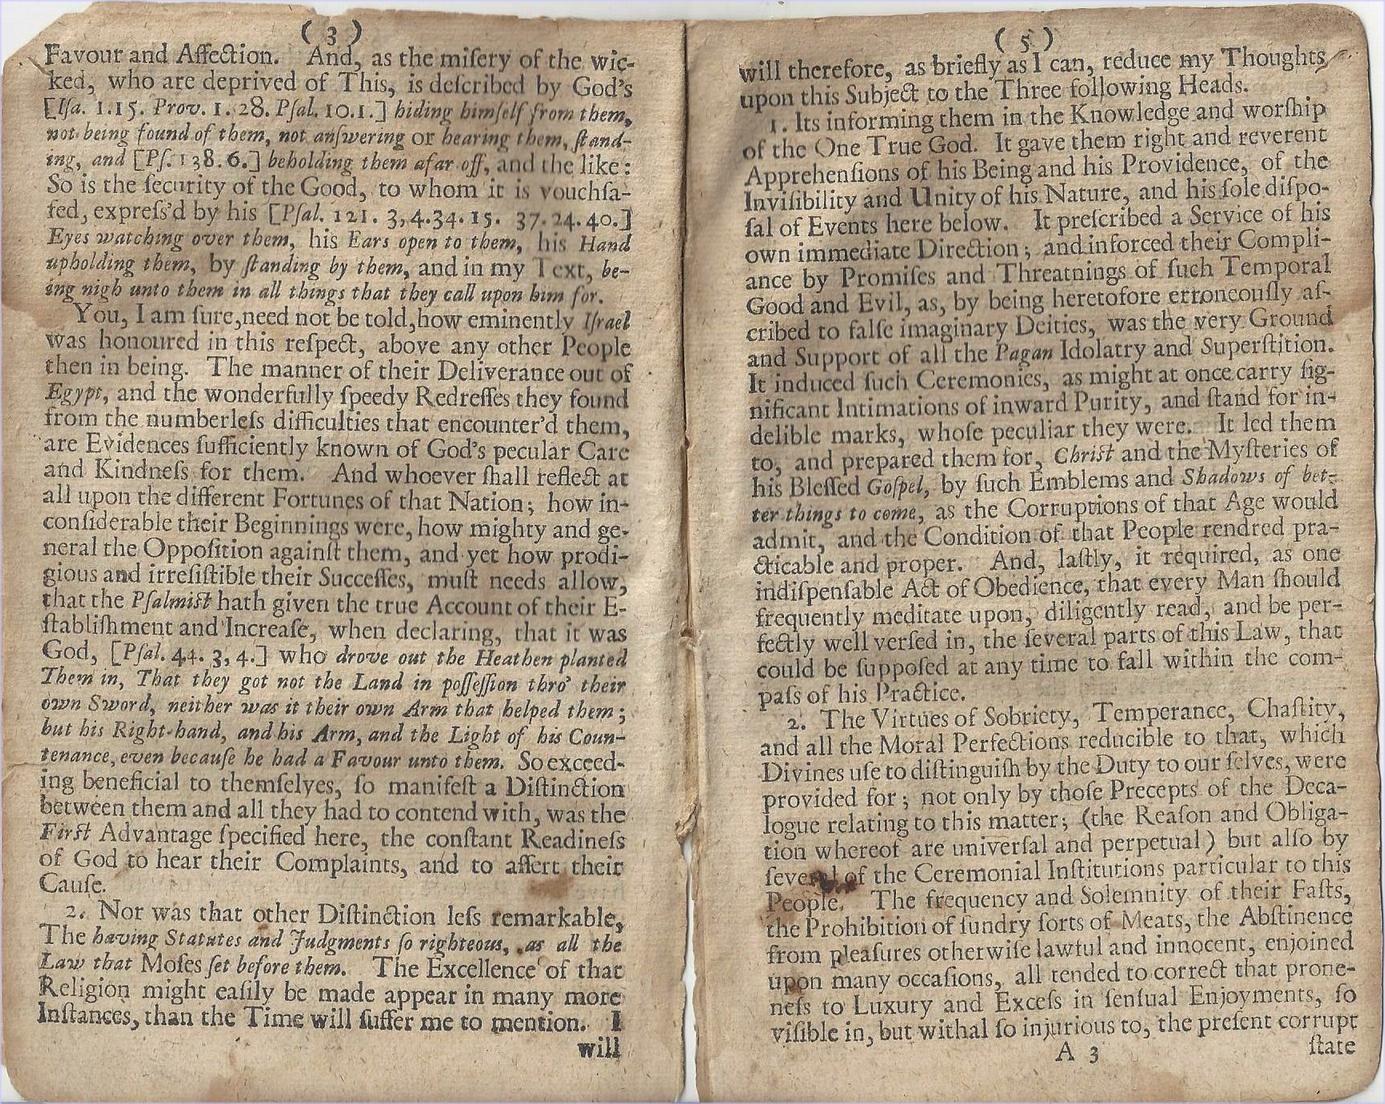 ( 3 )
Favour and Affection. And, as the miſery of the wic-
ked, who are deprived of This, is deſcribed by God's
[Iſa. 1.15. Prov. 1. 28. Pſal. 10.1.] hiding himſelf from them,
not being found of them, not anſwering or hearing them, ſtand-
ing, and [Pſ. 138.6.] beholding them afar off, and the like:
So is the ſecurity of the Good, to whom it is vouchſa-
fed, expreſs'd by his [Pſal. 121. 3,4.34. 15. 37.24.40.]
Eyes watching over them, his Ears open to them, his Hand
upholding them, by ſtanding by them, and in my Text, be-
ing nigh unto them in all things that they call upon him for.
You, I am ſure, need not be told, how eminently Iſrael
was honoured in this reſpect, above any other People
then in being. The manner of their Deliverance out of
Egypt, and the wonderfully ſpeedy Redreſſes they found
from the numberleſs difficulties that encounter'd them,
are Evidences ſufficiently known of God's pecular Care
and Kindneſs for them. And whoever ſhall reflect at
all upon the different Fortunes of that Nation; how in-
conſiderable their Beginnings were, how mighty and ge-
neral the Oppoſition againſt them, and yet how prodi-
gious and irreſiſtible their Succeſſes, muſt needs allow,
that the Pſalmiſt hath given the true Account of their E-
ſtabliſhment and Increaſe, when declaring, that it was
God, [Pſal. 44. 3, 4.] who drove out the Heathen planted
Them in, That they got not the Land in poſſeſſion thro' their
own Sword, neither was it their own Arm that helped them;
but his Right-hand, and his Arm, and the Light of his Coun-
tenance, even becauſe he had a Favour unto them. So exceed-
ing beneficial to themſelves, ſo manifeſt a Diſtinction
between them and all they had to contend with, was the
Firſt Advantage ſpecified here, the conſtant Readineſs
of God to hear their Complaints, and to aſſert their
Cauſe.
2. Nor was that other Diſtinction leſs remarkable,
The having Statutes and Judgments ſo righteous, as all the
Law that Moſes ſet before them. The Excellence of that
Religion might eaſily be made appear in many more
Inſtances, than the Time will ſuffer me to mention. I
will
( 5 )
will therefore, as briefly as I can, reduce my Thoughts
upon this Subject to the Three following Heads.
1. Its informing them in the Knowledge and worſhip
of the One True God. It gave them right and reverent
Apprehenſions of his Being and his Providence, of the
Inviſibility and Unity of his Nature, and his ſole diſpo-
ſal of Events here below. It preſcribed a Service of his
own immediate Direction; and inforced their Compli-
ance by Promiſes and Threatnings of ſuch Temporal
Good and Evil, as, by being heretofore erroneouſly aſ-
cribed to falſe imaginary Deities, was the very Ground
and Support of all the Pagan Idolatry and Superſtition.
It induced ſuch Ceremonies, as might at once carry ſig-
nificant Intimations of inward Purity, and ſtand for in-
delible marks, whoſe peculiar they were. It led them
to, and prepared them for, Chriſt and the Myſteries of
his Bleſſed Goſpel, by ſuch Emblems and Shadows of bet-
ter things to come, as the Corruptions of that Age would
admit, and the Condition of that People rendred pra-
cticable and proper. And, laſtly, it required, as one
indiſpenſable Act of Obedience, that every Man ſhould
frequently meditate upon, diligently read, and be per-
fectly well verſed in, the ſeveral parts of this Law, that
could be ſuppoſed at any time to fall within the com-
paſs of his Practice.
2. The Virtues of Sobriety, Temperance, Chaſtity,
and all the Moral Perfections reducible to that, which
Divines uſe to diſtinguiſh by the Duty to our ſelves, were
provided for; not only by thoſe Precepts of the Deca-
logue relating to this matter; (the Reaſon and Obliga-
tion whereof are univerſal and perpetual) but alſo by
ſeveral of the Ceremonial Inſtitutions particular to this
People. The frequency and Solemnity of their Faſts,
the Prohibition of ſundry ſorts of Meats, the Abſtinence
from pleaſures otherwiſe lawful and innocent, enjoined
upon many occaſions, all tended to correct that prone-
neſs to Luxury and Exceſs in ſenſual Enjoyments, ſo
viſible in, but withal ſo injurious to, the preſent corrupt
A 3
ſtate